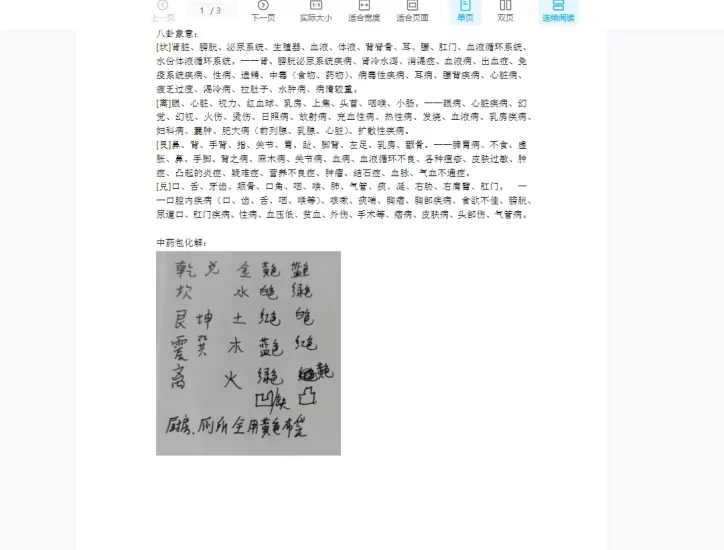 上一页 1 / 3 下一页 实际大小 适合宽度 适合页面 单页 双页 连续阅读
八卦象意：
[坎]肾脏、膀胱、泌尿系统、生殖器、血液、体液、背脊骨、耳、腰、肛门、血液循环系统、
水份体液循环系统。一一肾、膀胱泌尿系统疾病、肾冷水泻、消渴症、血液病、出血症、免
疫系统疾病、性病、遗精、中毒（食物、药物）、病毒性疾病、耳病、腰背疾病、心脏病、
疲乏过度、渴冷病、拉肚子、水肿病、病情较重。
[离]眼、心脏、视力、红血球、乳房、上焦、头首、咽喉、小肠。一一眼病、心脏疾病、幻
觉、幻视、火伤、烫伤、日照病、放射病、充血性病、热性病、发烧、血液病、乳房疾病、
妇科病、囊肿、肥大病（前列腺、乳腺、心脏）、扩散性疾病。
[艮]鼻、背、手背、指、关节、胃、趾、脚背、左足、乳房、颧骨。一一脾胃病、不食、虚
胀、鼻、手脚、背之病、麻木病、关节病、血病、血液循环不良、各种痘疹、皮肤过敏、肿
症、凸起的炎症、疑难症、营养不良症、肿瘤、结石症、血脉、气血不通症。
[兑]口、舌、牙齿、颊骨、口角、咽、喉、肺、气管、痰、涎、右肋、右肩臂、肛门。 一
一口腔内疾病（口、齿、舌、咽、喉等）、咳嗽、痰喘、胸痛、胸部疾病、食欲不佳、膀胱、
尿道口、肛门疾病、性病、血压低、贫血、外伤、手术等、癌病、皮肤病、头部伤、气管病。
中药包化解：
乾 兑 金 黄色 蓝色
坎 水 白色 绿色
艮 坤 土 红色 白色
震 巽 木 蓝色 红色
离 火 绿色 黄色
凹/缺 凸
厨房、厕所全用黄色布袋